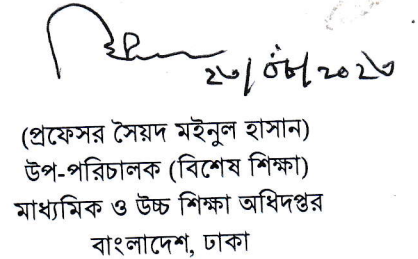 ২৩/০৮/২০২৩
(প্রফেসর সৈয়দ মইনুল হাসান)
উপ-পরিচালক (বিশেষ শিক্ষা)
মাধ্যমিক ও উচ্চ শিক্ষা অধিদপ্তর
বাংলাদেশ, ঢাকা